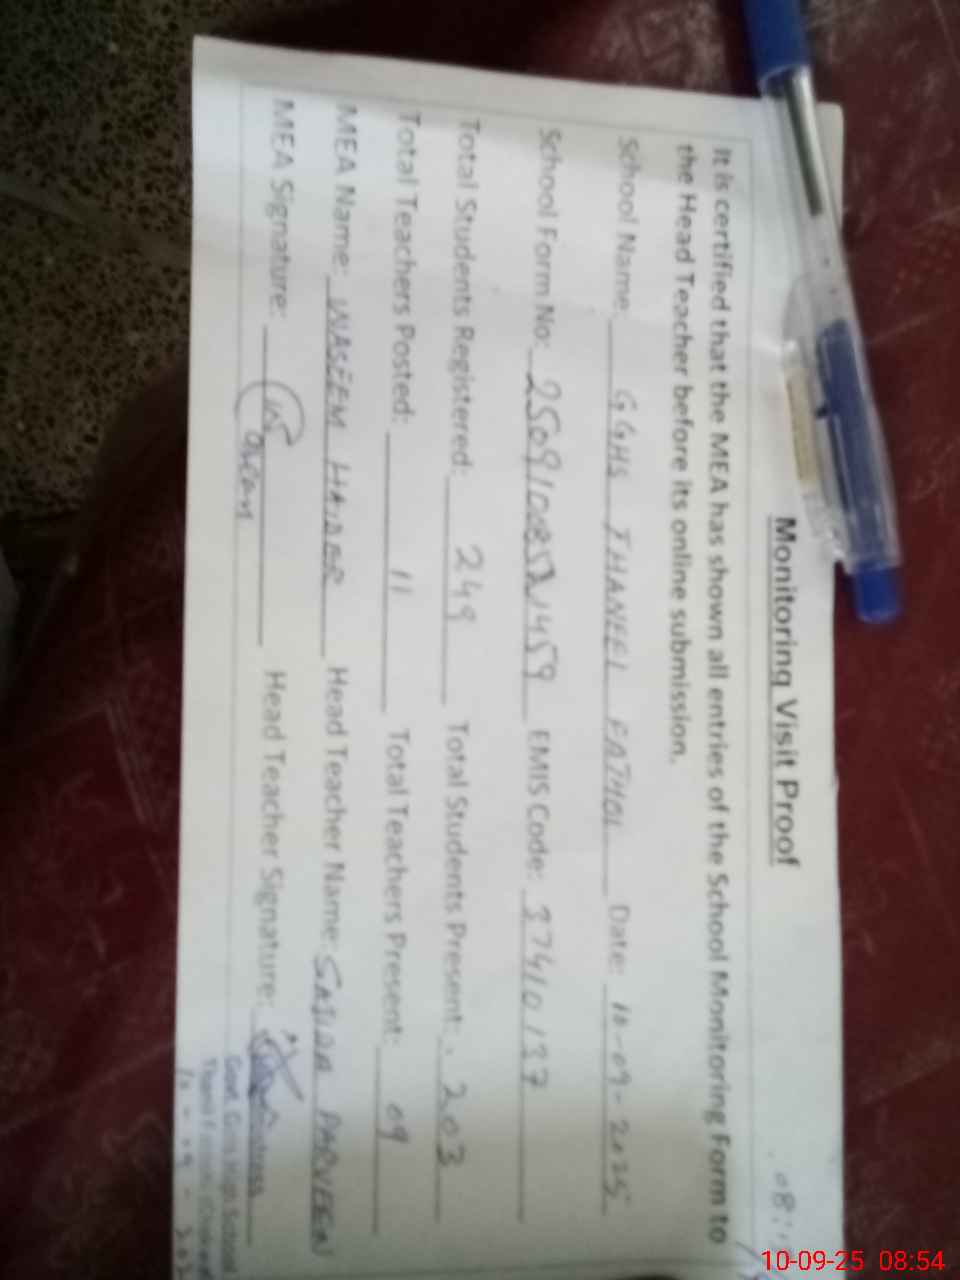 08:
Monitoring Visit Proof
It is certified that the MEA has shown all entries of the School Monitoring Form to
the Head Teacher before its online submission.
School Name: GGHS THANEEL FATHOL Date: 10-09-2025
School Form No: EMIS Code: 37410137
Total Students Registered: 249 Total Students Present: 203
Total Teachers Posted: 11 Total Teachers Present: 09
MEA Name: WASEEM HAIDER Head Teacher Name: SAJIDA PARVEEN
MEA Signature: Head Teacher Signature:
Govt. Girls High School
10-09-25 08:54